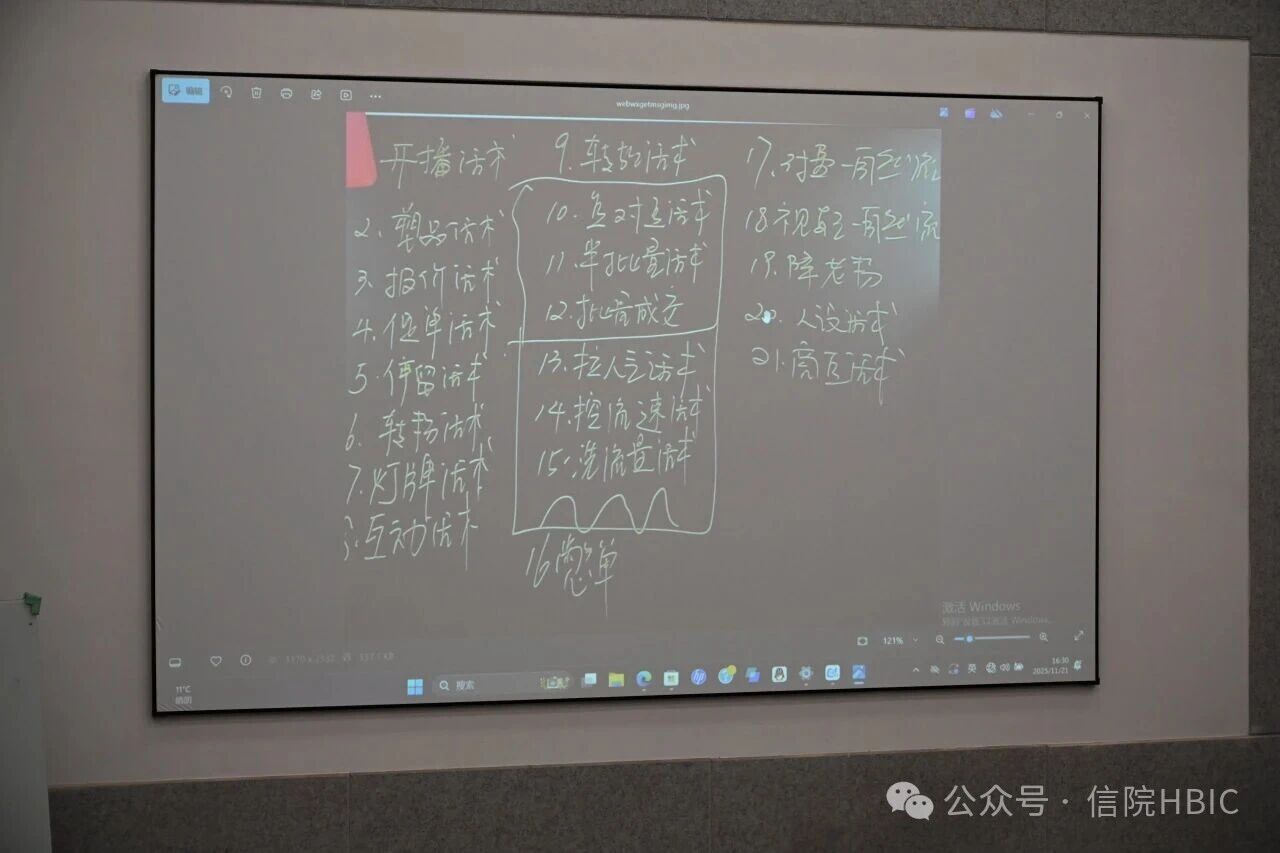 编辑
webwxgetmsgimg.jpg
开播话术
2.塑品话术
3.报价话术
4.促单话术
5.停留话术
6.转粉话术
7.灯牌话术
互动话术
9.转款话术
10.负对负话术
11.半批量话术
12.批量成交
13.拉人气话术
14.控流速话术
15.洗流量话术
16憋单
17.
自然流
18
自然流
19.
20.人设话术
21.商互话术
激活 Windows
121%
11°C
晴朗
搜索
英
16:30
2025/11/21
公众号·信院HBIC